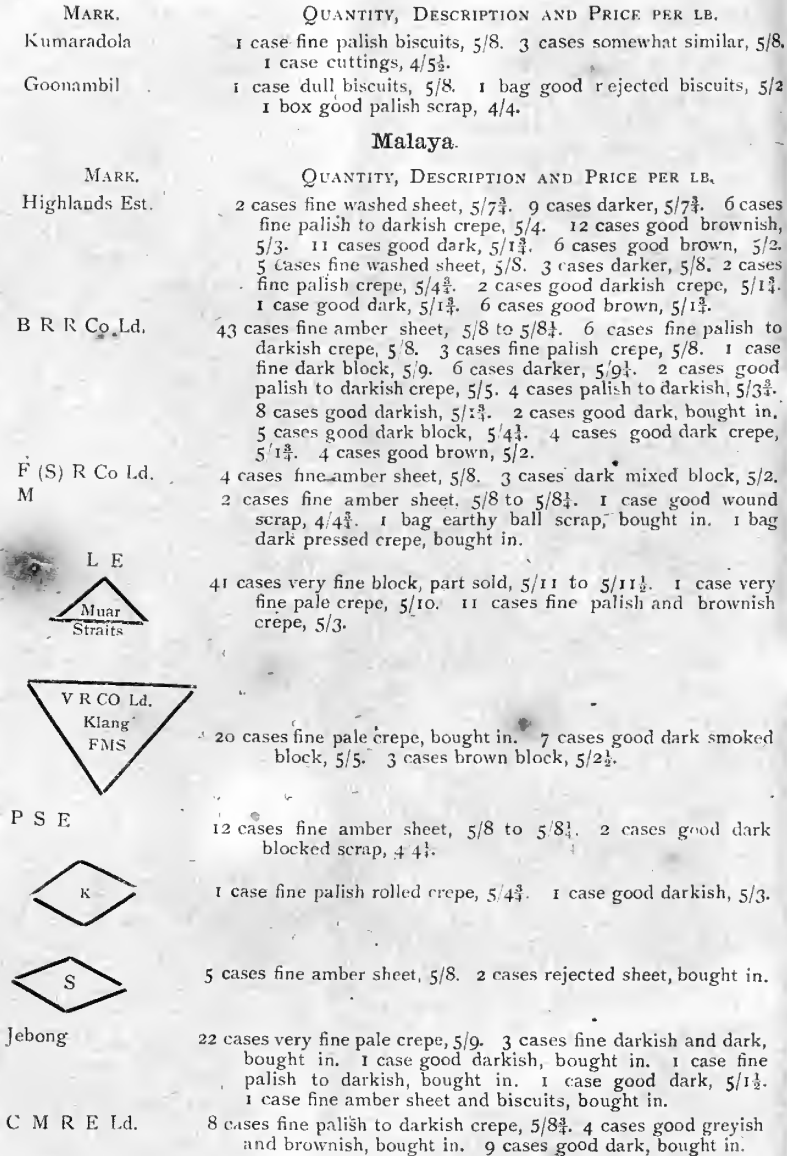 MARK. QUANTITY, DESCRIPTION AND PRICE PER LB.
Kumaradola 1 case fine palish biscuits, 5/8. 3 cases somewhat similar, 5/8.
1 case cuttings, 4/5½.
Goonambil 1 case dull biscuits, 5/8. 1 bag good rejected biscuits, 5/2
1 box good palish scrap, 4/4.
Malaya.
MARK. QUANTITY, DESCRIPTION AND PRICE PER LB.
Highlands Est. 2 cases fine washed sheet, 5/7¾. 9 cases darker, 5/7¾. 6 cases
fine palish to darkish crepe, 5/4. 12 cases good brownish,
5/3. 11 cases good dark, 5/1¾. 6 cases good brown, 5/2.
5 cases fine washed sheet, 5/8. 3 cases darker, 5/8. 2 cases
fine palish crepe, 5/4¾. 2 cases good darkish crepe, 5/1¾.
1 case good dark, 5/1¾. 6 cases good brown, 5/1¾.
B R R Co. Ld. 43 cases fine amber sheet, 5/8 to 5/8¼. 6 cases fine palish to
darkish crepe, 5/8. 3 cases fine palish crepe, 5/8. 1 case
fine dark block, 5/9. 6 cases darker, 5/9¼. 2 cases good
palish to darkish crepe, 5/5. 4 cases palish to darkish, 5/3¾.
8 cases good darkish, 5/1¾. 2 cases good dark, bought in.
5 cases good dark block, 5/4¼. 4 cases good dark crepe,
5/1¾. 4 cases good brown, 5/2.
F (S) R Co Ld. 4 cases fine amber sheet, 5/8. 3 cases dark mixed block, 5/2.
M 2 cases fine amber sheet, 5/8 to 5/8¼. 1 case good wound
scrap, 4/4¾. 1 bag earthy ball scrap, bought in. 1 bag
dark pressed crepe, bought in.
L E
Muar
Straits
41 cases very fine block, part sold, 5/11 to 5/11½. 1 case very
fine pale crepe, 5/10. 11 cases fine palish and brownish
crepe, 5/3.
V R CO Ld.
Klang
FMS
20 cases fine pale crepe, bought in. 7 cases good dark smoked
block, 5/5. 3 cases brown block, 5/2½.
P S E 12 cases fine amber sheet, 5/8 to 5/8¼. 2 cases good dark
blocked scrap, 4 4¼.
K 1 case fine palish rolled crepe, 5/4¾. 1 case good darkish, 5/3.
S 5 cases fine amber sheet, 5/8. 2 cases rejected sheet, bought in.
Jebong 22 cases very fine pale crepe, 5/9. 3 cases fine darkish and dark,
bought in. 1 case good darkish, bought in. 1 case fine
palish to darkish, bought in. 1 case good dark, 5/1½.
1 case fine amber sheet and biscuits, bought in.
C M R E Ld. 8 cases fine palish to darkish crepe, 5/8¾. 4 cases good greyish
and brownish, bought in. 9 cases good dark, bought in.